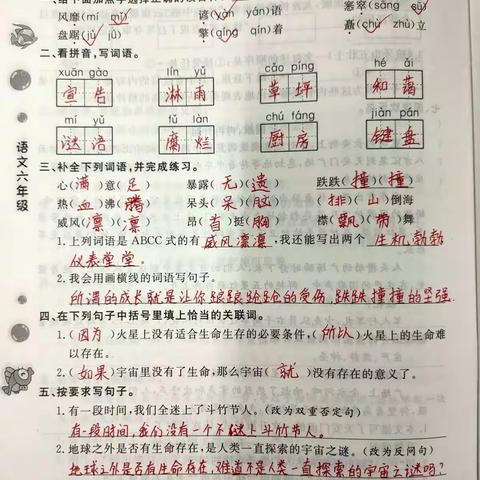 一、给下面加点字选择正确的读音
风靡(mí mǐ) 谚(yàn yán)语 塞窣(sāng sū)
盘踞(jù jǔ) 擎(qíng qín)着 矗(chù zhù)立
二、看拼音,写词语。
xuān gào lín yǔ cǎo píng hé ǎi
宣告 淋雨 草坪 和蔼
mí yǔ fǔ làn chú fáng jiàn pán
谜语 腐烂 厨房 键盘
三、补全下列词语,并完成练习。
心(满)意(足) 暴露(无)(遗) 跌跌(撞)(撞)
热(血)沸(腾) 呆头(呆)(脑) (排)(山)倒海
威风(凛)(凛) 昂(首)挺(胸) 襟(飘)(带)舞
1.上列词语是 ABCC 式的有 威风凛凛 ,我还能写出两个 生机勃勃
仪表堂堂。
2.我会用画横线的词语写句子。
所谓的成长就是让你踉踉跄跄的受伤,跌跌撞撞的坚强.
四、在下列句子中括号里填上恰当的关联词。
1.(因为)火星上没有适合生命生存的必要条件,(所以)火星上的生命难
以存在。
2.(如果)宇宙里没有了生命,那么宇宙(就)没有存在的意义了。
五、按要求写句子。
1.有一段时间,我们全迷上了斗竹节人。(改为双重否定句)
有一段时间,我们没有一个不迷上斗竹节人。
2.地球之外是否有生命存在,是人类一直探索的宇宙之谜。(改为反问句)
地球之外是否有生命存在,难道不是人类一直探索的宇宙之谜吗?
语文六年级